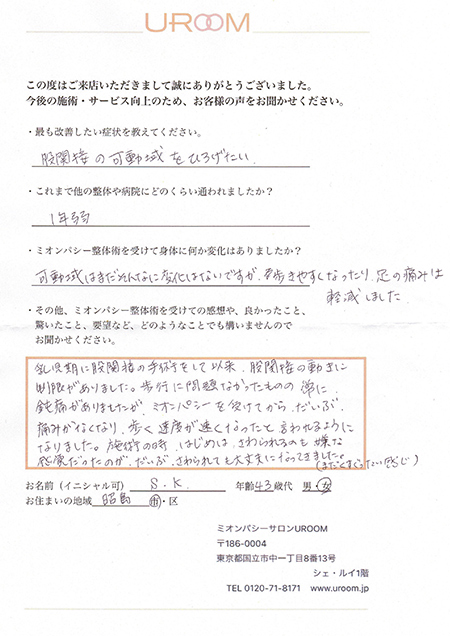 UROOM
この度はご来店いただきまして誠にありがとうございました。
今後の施術・サービス向上のため、お客様の声をお聞かせください。
・最も改善したい症状を教えてください。
股関接の可動域をひろげたい
・これまで他の整体や病院にどのくらい通われましたか？
1年弱
・ミオンパシー整体術を受けて身体に何か変化はありましたか？
可動域はまだそんなに変化はないですが、歩きやすくなったり、足の痛みは
軽減しました
・その他、ミオンパシー整体術を受けての感想や、良かったこと、
驚いたこと、要望など、どのようなことでも構いませんので
お聞かせください。
乳児期に股関接の手術をして以来、股関接の動きに
制限がありました。歩行に問題なかったものの常に
鈍痛がありましたが、ミオンパシーを受けてから、だいぶ
痛みがなくなり、歩く速度が速くなったと言われるように
なりました。施術の時、はじめは、さわられるのも嫌な
感覚だったのが、だいぶ、さわられても大丈夫になってきました。
(まだくすぐったい感じ)
お名前（イニシャル可） S.K 年齢43歳代 男・女
お住まいの地域 昭島 市・区
ミオンパシーサロンUROOM
〒186-0004
東京都国立市中一丁目8番13号
シェ・ルイ1階
TEL 0120-71-8171 www.uroom.jp